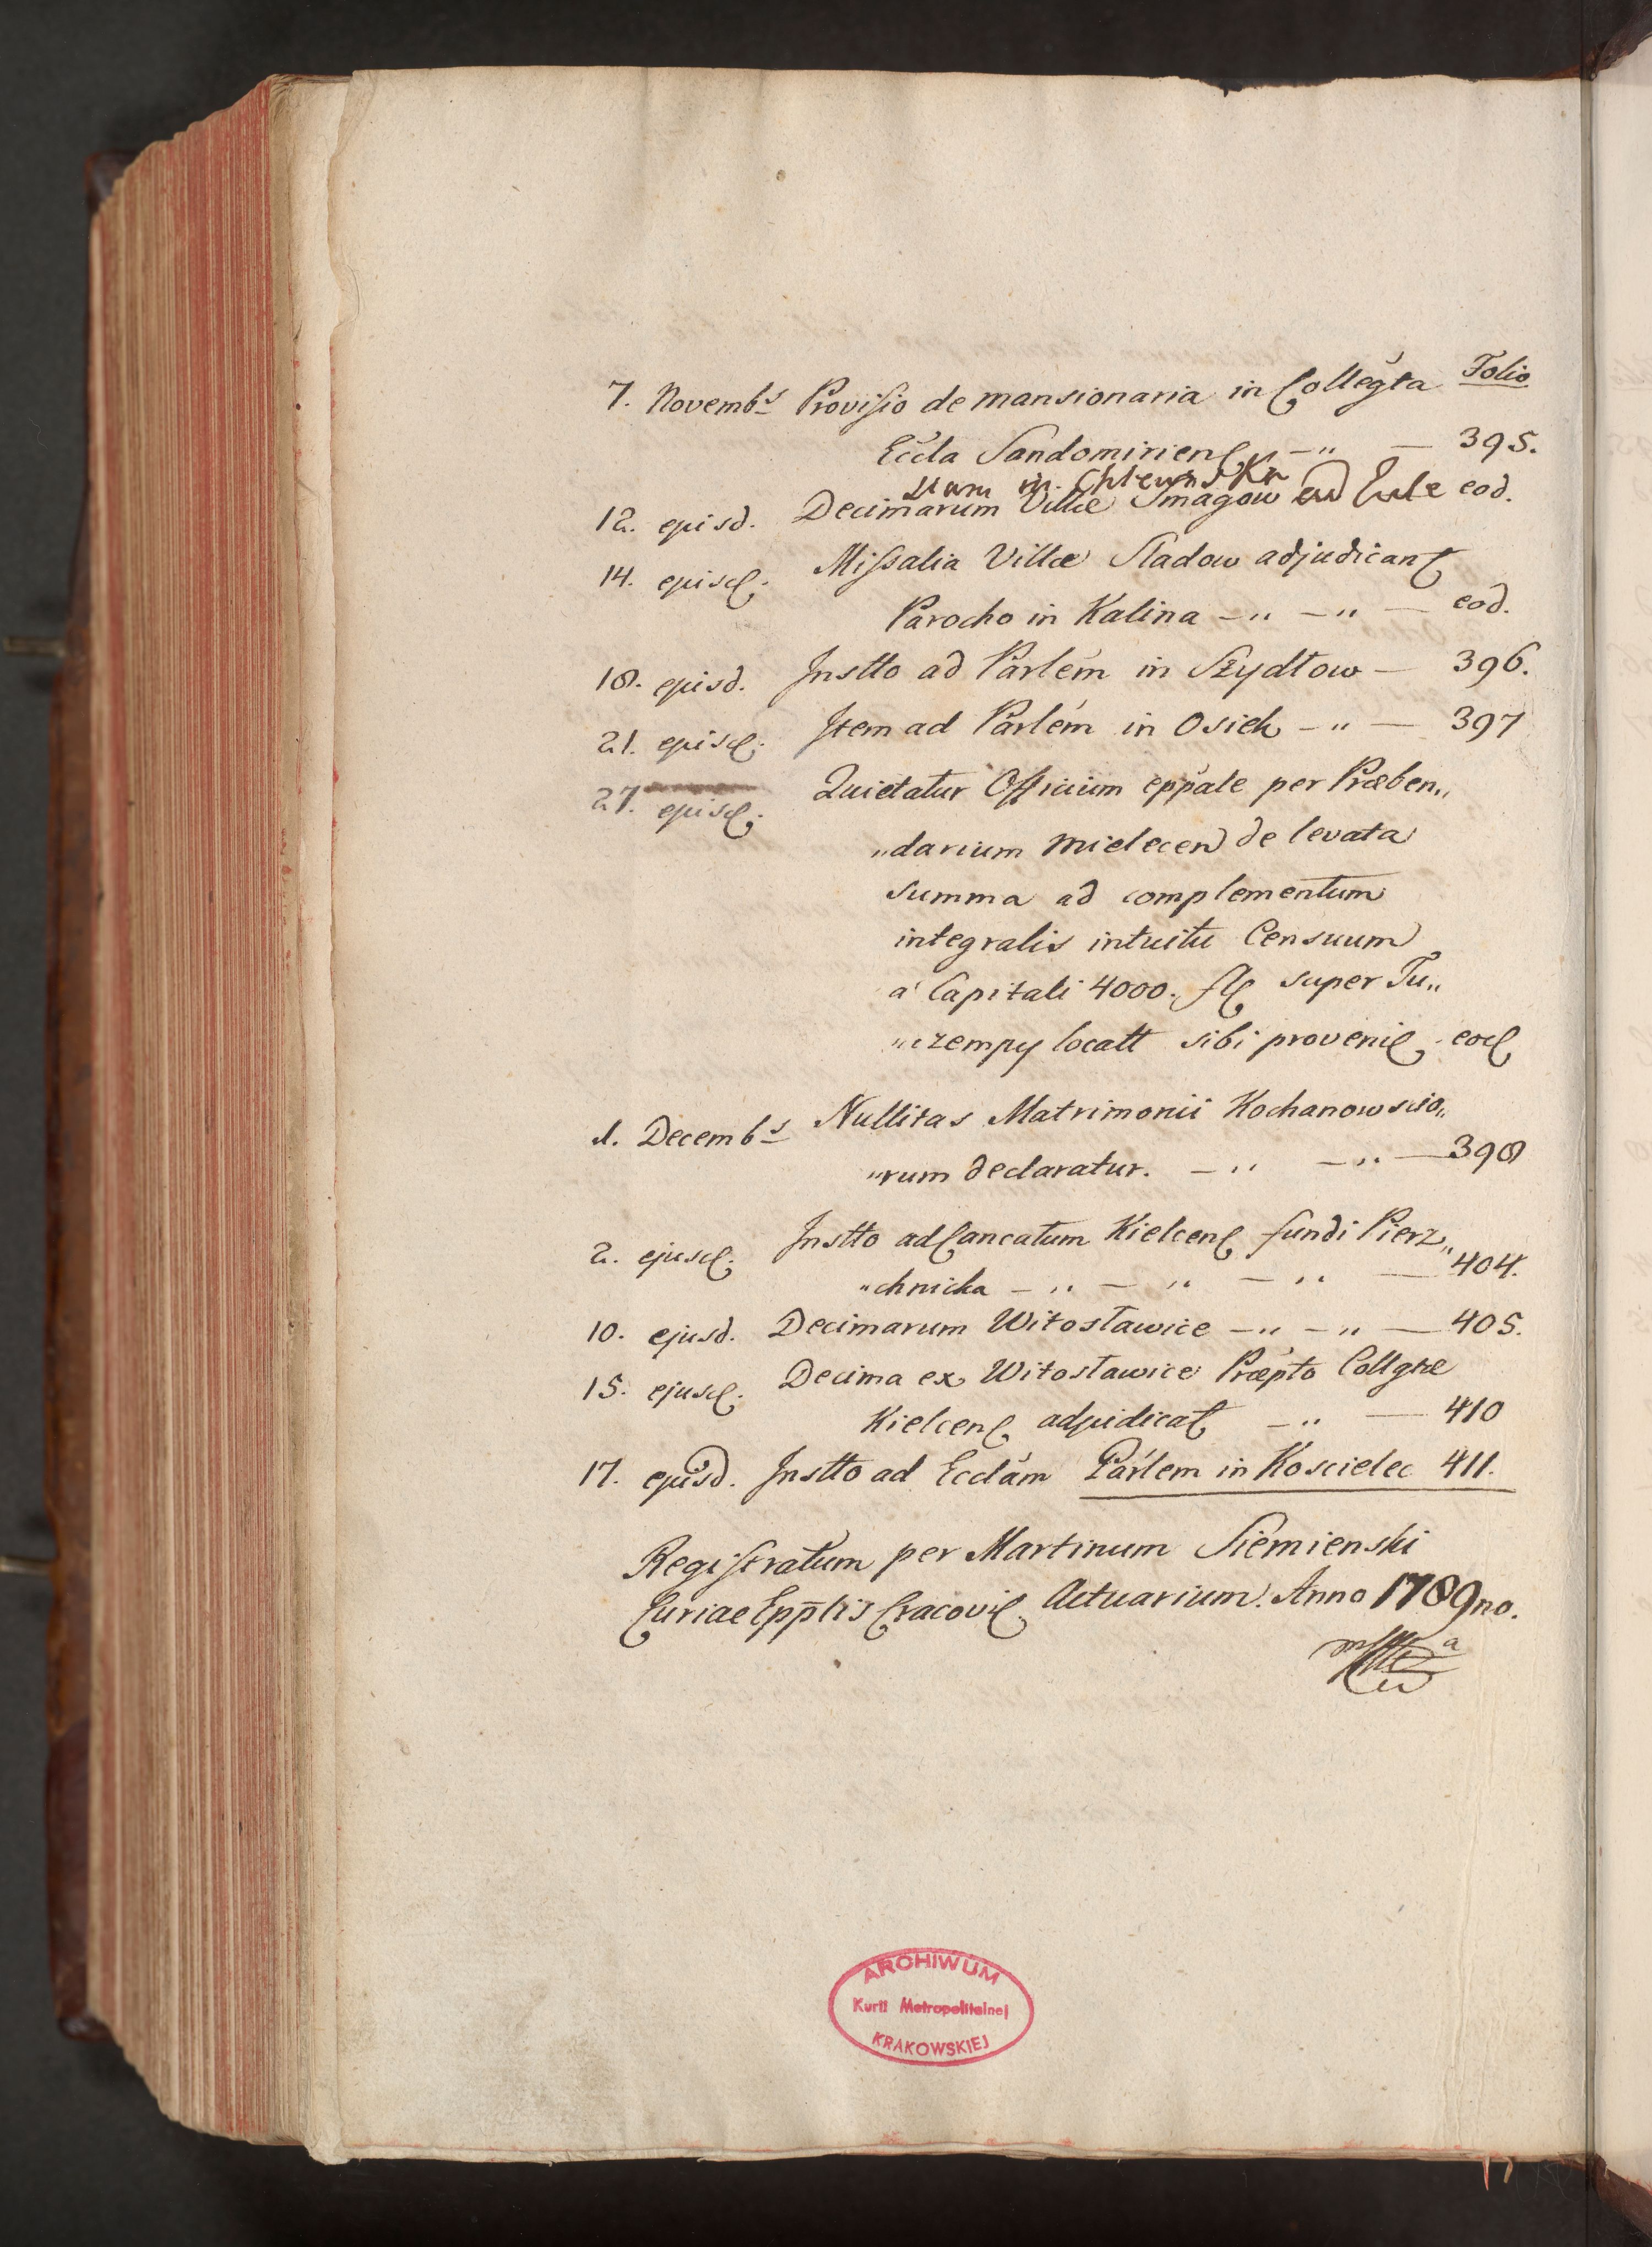 Folio
7. Novembs Provisio de mansionaria in Collegta
Eccla Sandomiriens „ — „ — 395.
12. ejusd. Decimarum Villæ Smagow eod.
14. ejusd. Missalia Villæ Sladow adjudicant
Parocho in Kalina — „ — „ — eod.
18. ejusd. Instto ad Parlem in Szydłow — 396.
21. ejusd. Item ad Parlem in Osiek — „ — 397
27. ejusd. Quietatur Officium eppale per Præben„
„darium Mielecen de levata
summa ad complementum
integralis intuitu Censuum
a Capitali 4000. fl super Tu„
„czempy locatt sibi proveni eod
1. Decembs Nullitas Matrimonii Kochanowscio„
„rum declaratur. — „ — „ — 398
2. ejusd. Instto ad Cancatum Kielcens fundi Pierz„
„chnicka — „ — „ — „ — 404.
10. ejusd. Decimarum Witosławice — „ — „ — 405.
15. ejusd. Decima ex Witosławice Præpto Collgtæ
Kielcens adjudicat — „ — 410
17. ejusd. Instto ad Ecclam Parlem in Koscielec 411.
Registratum per Martinum Siemienski
Curiae Epplis Cracovi Actuarium. Anno 1789no.
ARCHIWUM
Kurii Metropolitalnej
KRAKOWSKIEJ